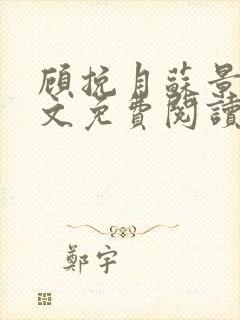 顾挽自蘇景
文免費閱讀
鄭宇